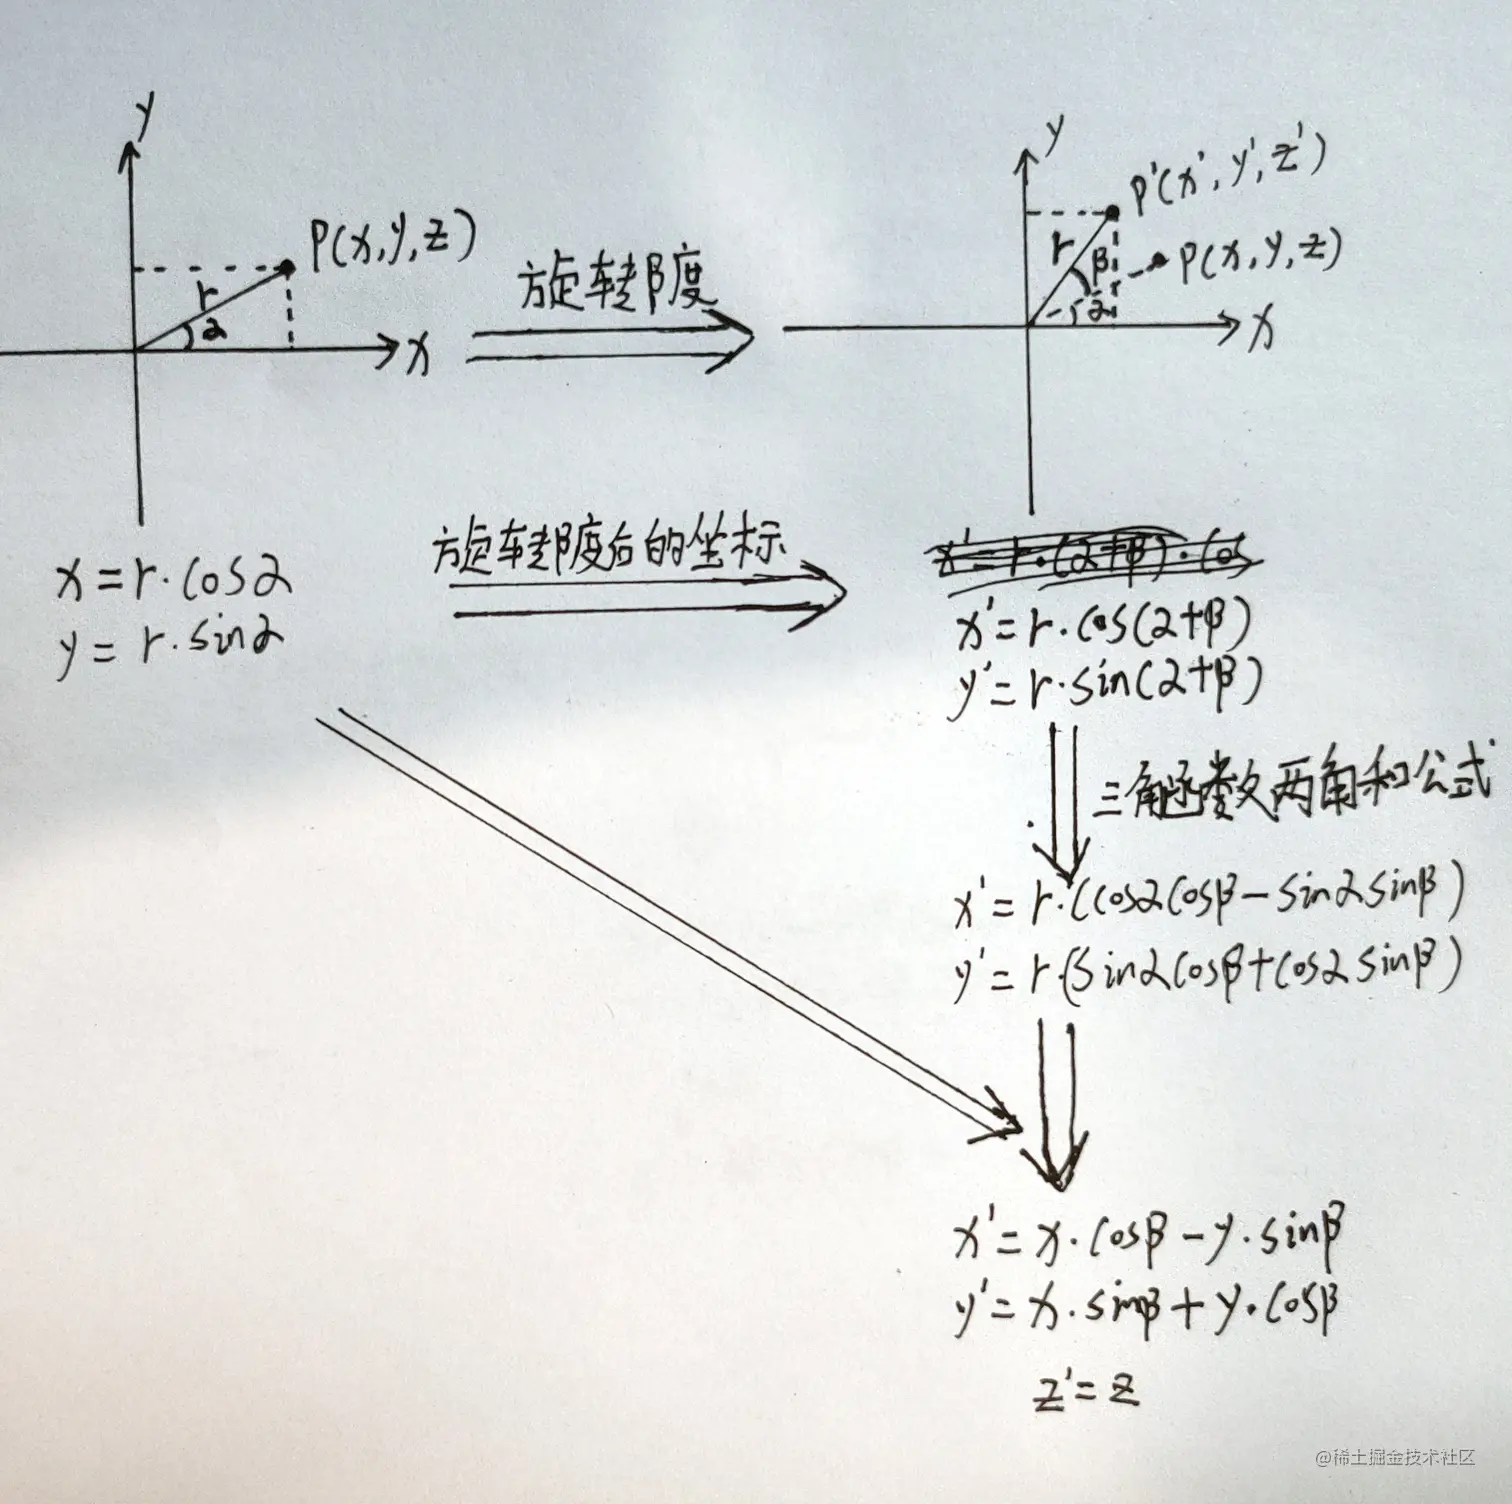 y
P(x,y,z)
r
α
x
旋转β度
y
P'(x',y',z')
r
β
P(x,y,z)
r
α
x
x=r·cosα
y=r·sinα
旋转β度后的坐标
x'=r·(α+β)·cos
x'=r·cos(α+β)
y'=r·sin(α+β)
三角函数两角和公式
x'=r·(cosαcosβ-sinαsinβ)
y'=r·(sinαcosβ+cosαsinβ)
x'=x·cosβ-y·sinβ
y'=x·sinβ+y·cosβ
z'=z
@稀土掘金技术社区